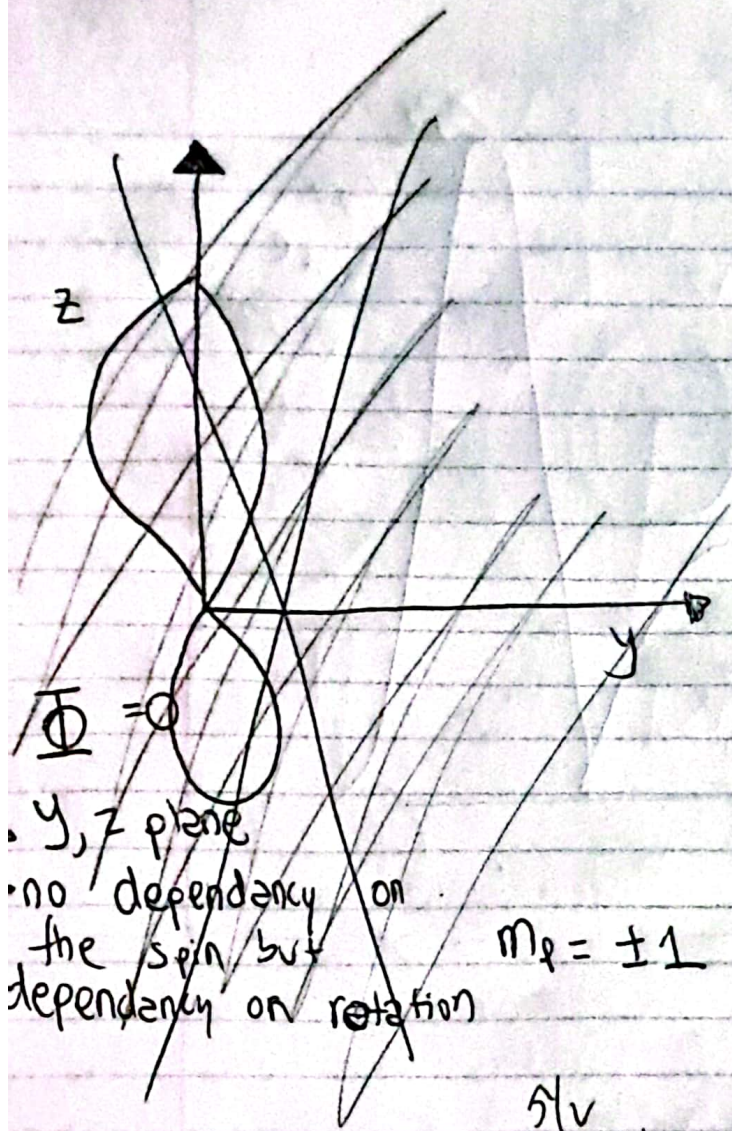 z
y
Φ = 0
y, z plane
no dependancy on
the spin but
dependancy on rotation
m_l = ±1